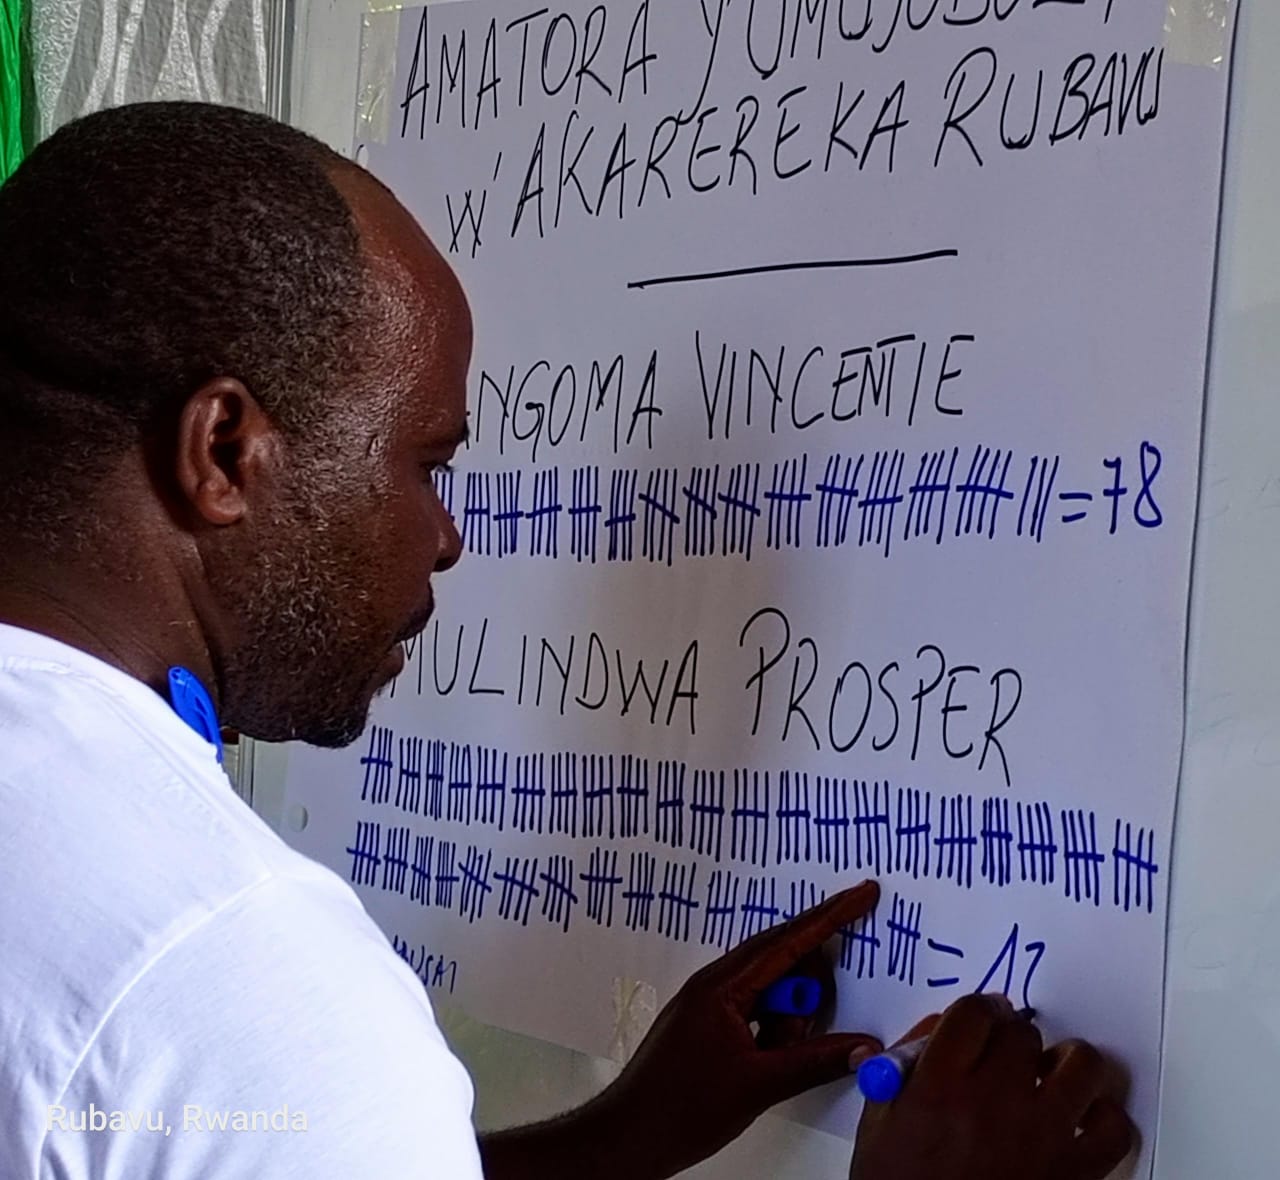 AMATORA Y'UMUYOBOZI
W'AKARERE KA RUBAVU
NGOMA VINCENTIE
= 78
MULINDWA PROSPER
=
Rubavu, Rwanda